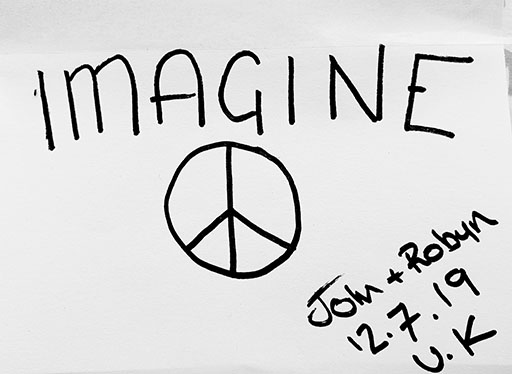 IMAGINE
John + Robyn
12.7.19
U.K